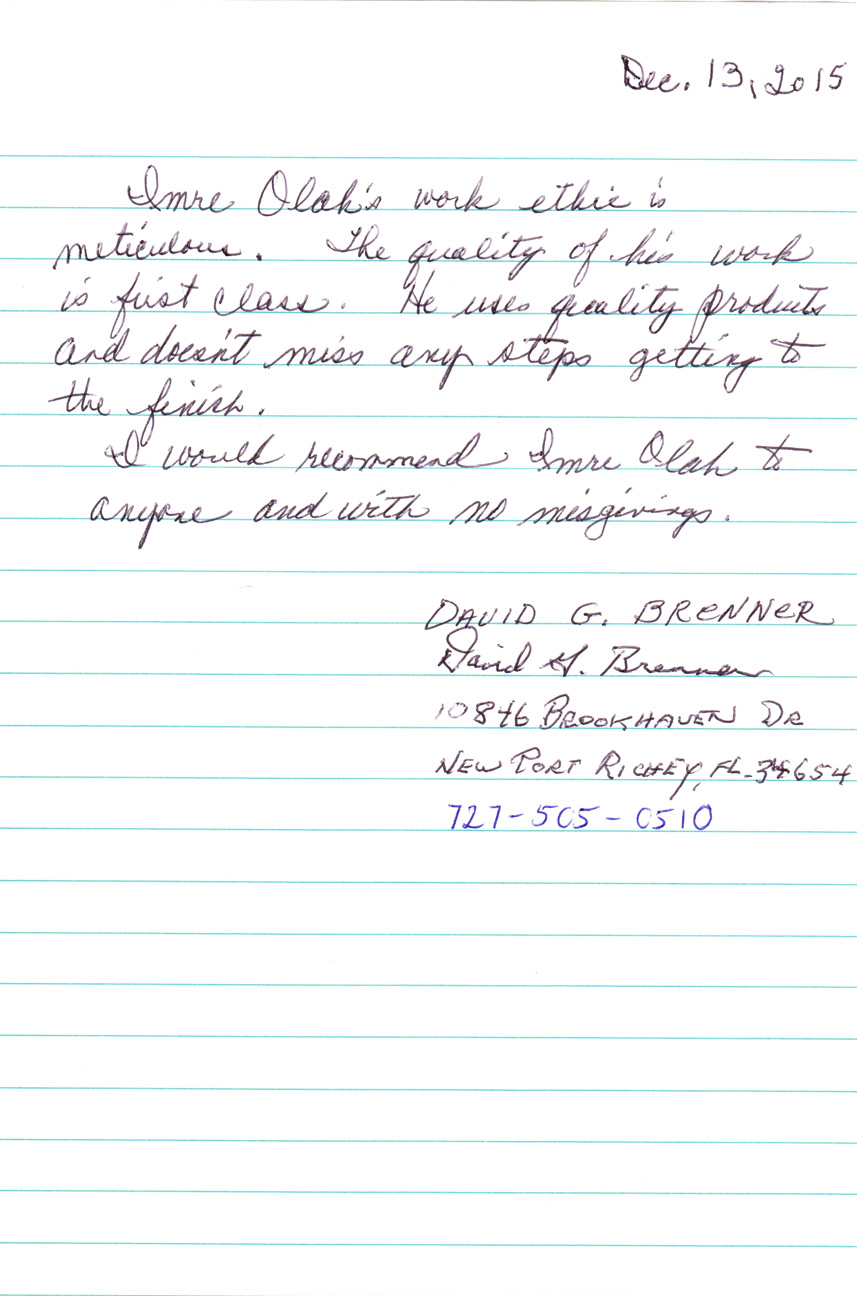 Dec. 13, 2015
Imre Olah's work ethic is
meticulous. The quality of his work
is first class. He uses quality products
and doesn't miss any steps getting to
the finish.
I would recommend Imre Olah to
anyone and with no misgivings.
DAVID G. BRENNER
David G. Brenner
10846 BROOKHAVEN DR
NEW PORT RICHEY, FL. 34654
727-505-0510